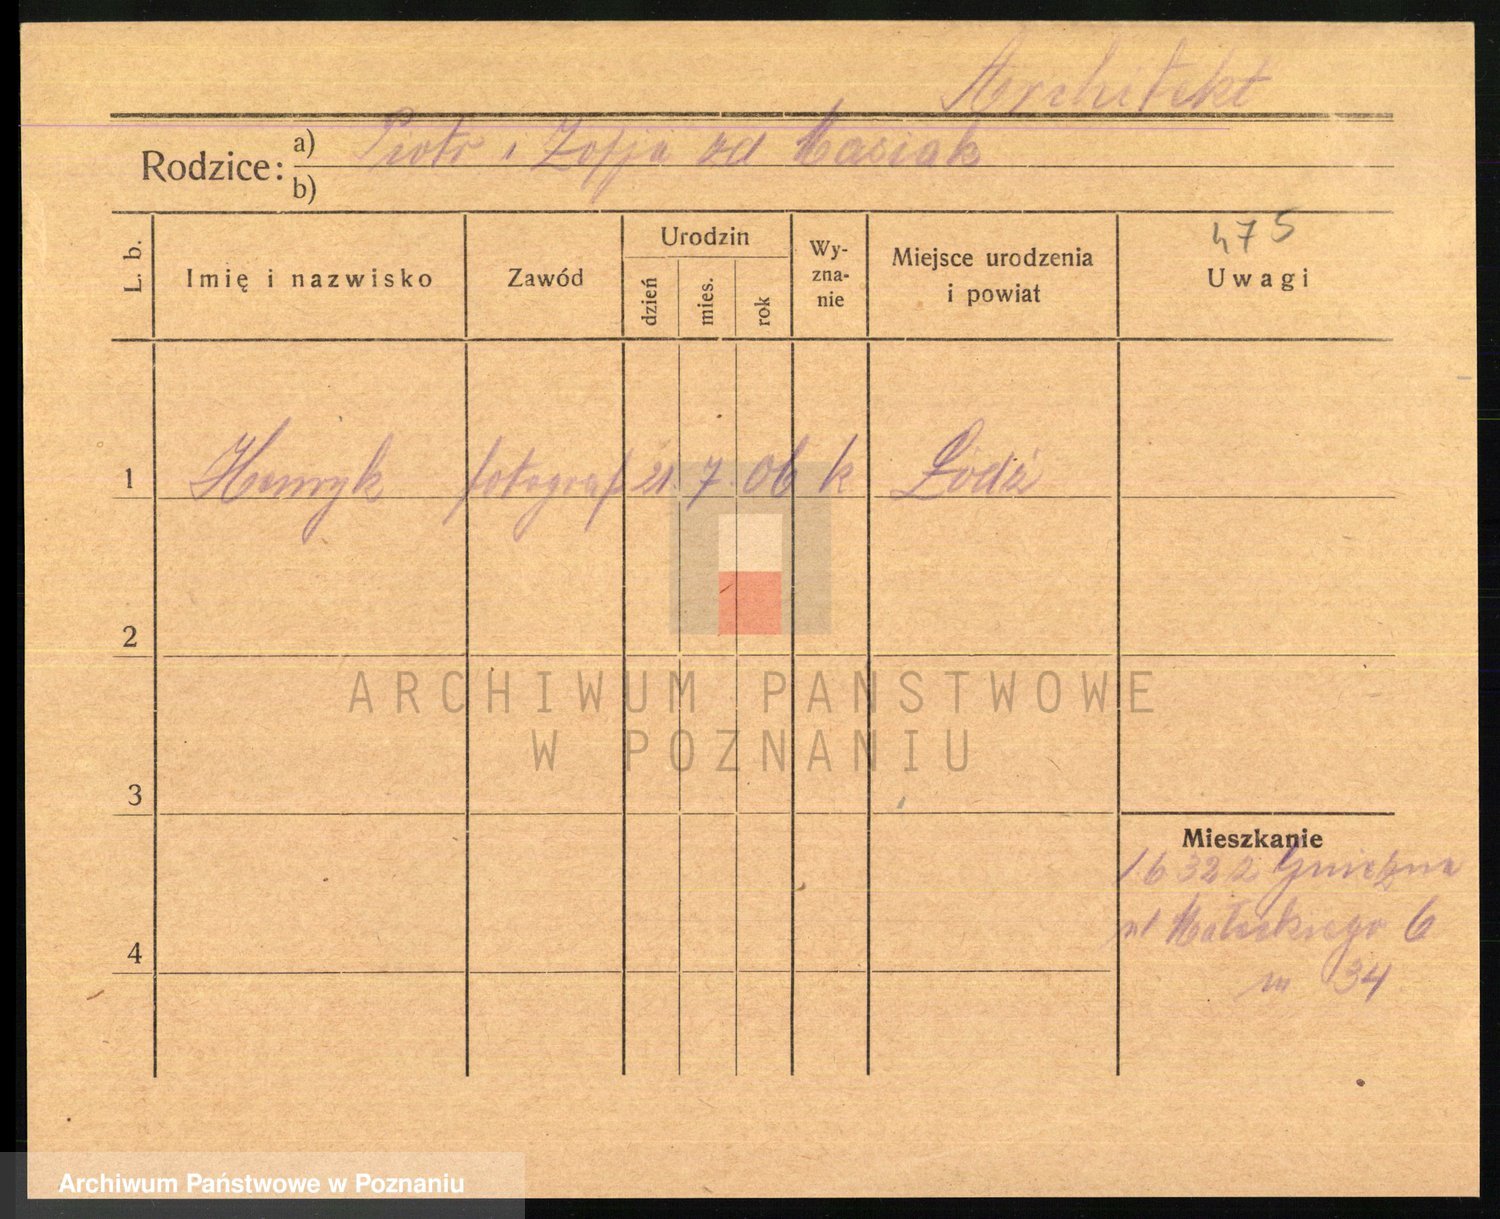 Architekt
Rodzice: a) Piotr i Zofja od Masiak
b)
L. b.
Imię i nazwisko
Zawód
Urodzin
dzień
mies.
rok
Wy-
zna-
nie
Miejsce urodzenia
i powiat
475
Uwagi
1 Henryk fotograf 21. 7. 06 k Łódź
2
ARCHIWUM PAŃSTWOWE
W POZNANIU
3
Mieszkanie
16322 Gniezna
6
4
m 34
Archiwum Państwowe w Poznaniu